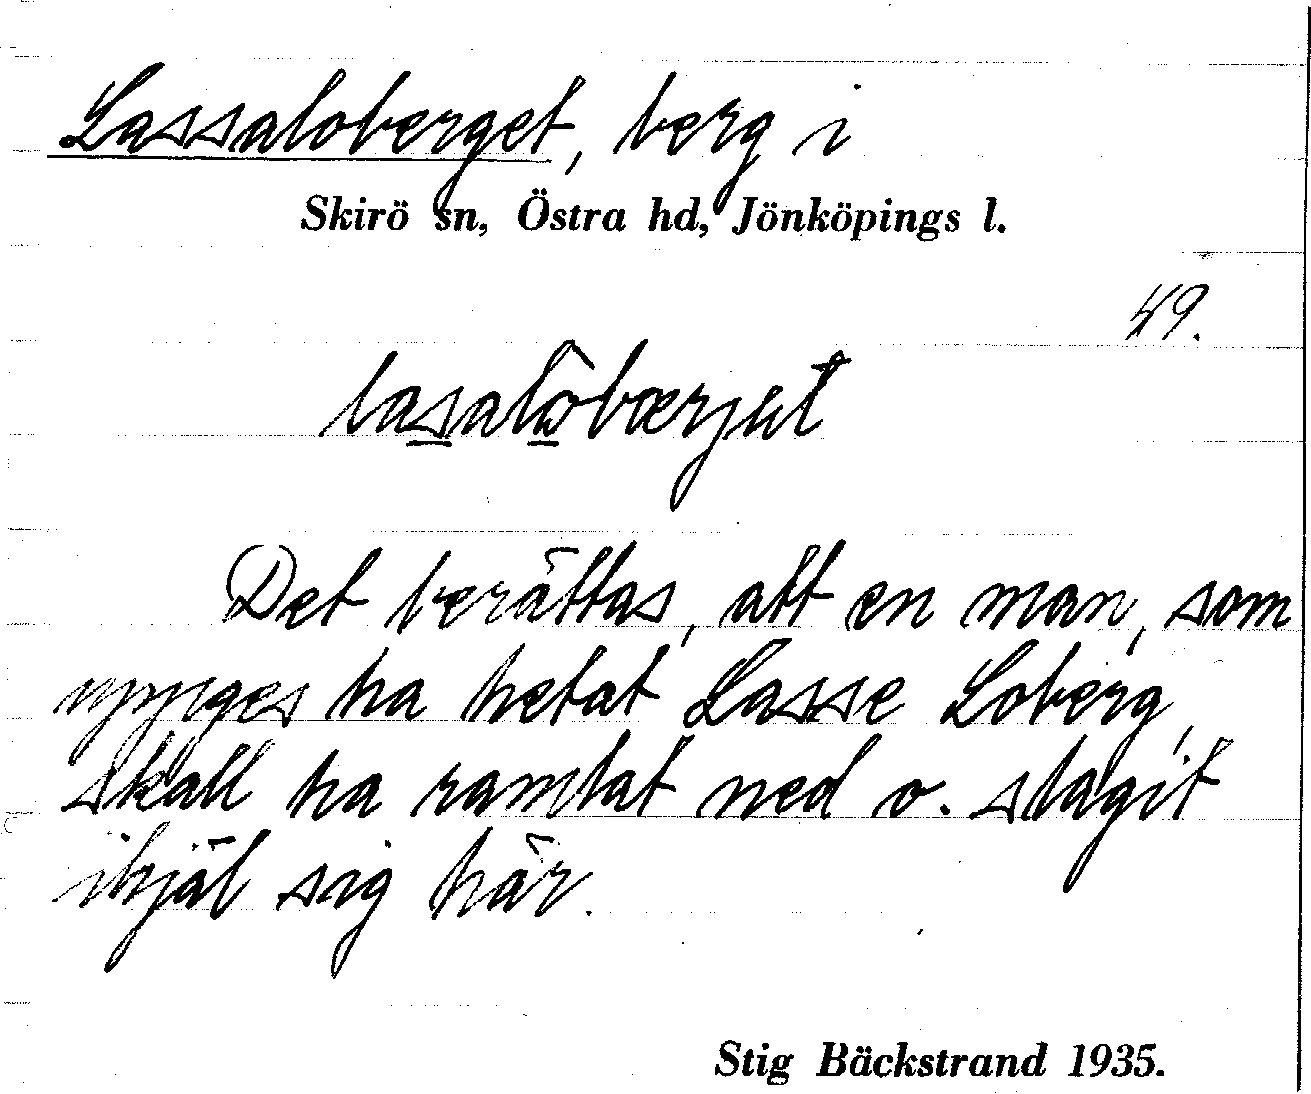 Lassaloberget, berg i
Skirö sn, Östra hd, Jönköpings l.
49.
lasalobærjet
Det berättas, att en man, som
uppges ha hetat Lasse Loberg,
skall ha ramlat ned o. slagit
ihjäl sig här.
Stig Bäckstrand 1935.